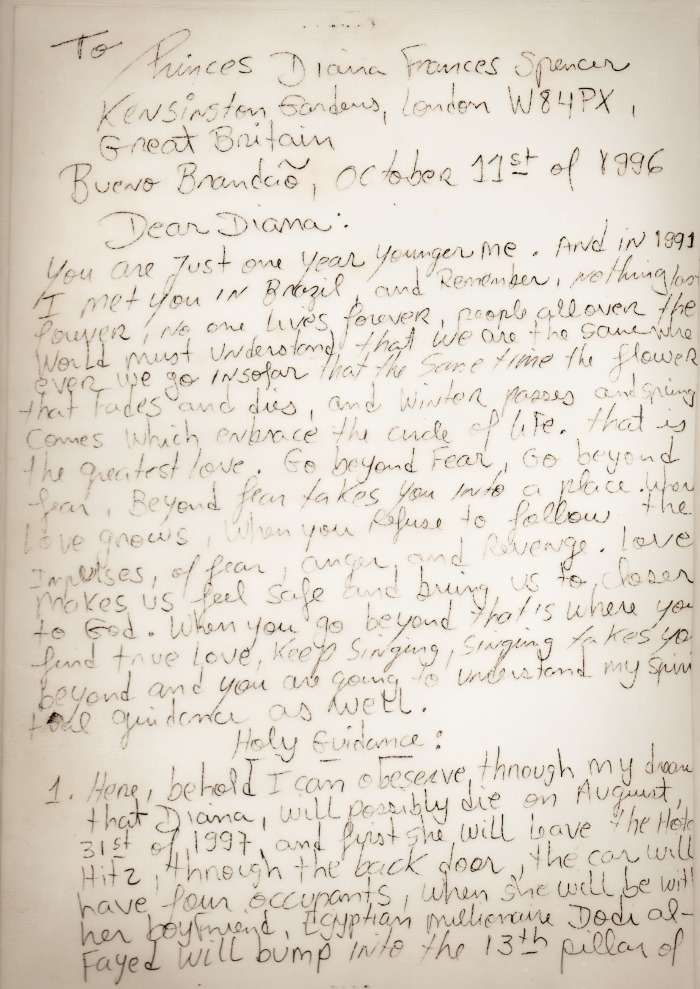 To
Princes Diana Frances Spencer
Kensington Gardens, London W84PX,
Great Britain
Bueno Brandão, October 11st of 1996
Dear Diana:
You are Just one year younger me. And in 1991
I met you in Brazil, and Remember, nothing las
fouver, no one lives forever, people all over the
World must understand that we are the same whe
ever we go insofar that the same time the flower
that Fades and dies, and Winter passes and spring
comes which embrace the circle of Life. that is
the greatest love. Go beyond Fear, Go beyond
fear, Beyond fear takes you into a place
Love grows, when you Refuse to follow the
Impulses, of fear, anger, and Revenge. Love
makes us feel safe and bring us to, closer
to God. When you go beyond that's where you
find true Love, Keep Singing, Singing takes yo
beyond and you are going to understand my Spiri
tual guidance as well.
Holy Guidance:
1. Here, behold I can obeserve, through my dream
that Diana, will possibly die on August,
31st of 1997, and first she will leave the Hote
Hitz, through the back door, the car will
have four occupants, when she will be wit
her boyfriend, Egyptian millionaire Dodi al-
Fayed will bump into the 13th pillar of